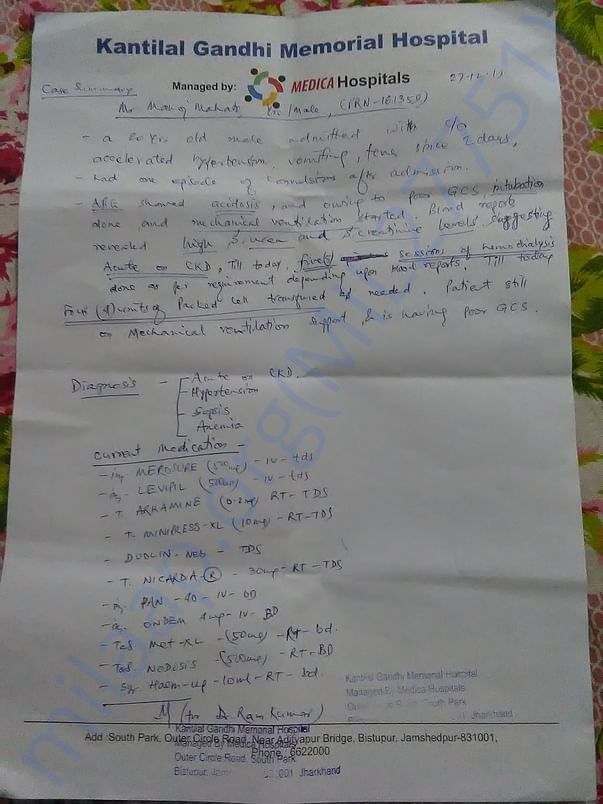 Kantilal Gandhi Memorial Hospital
Managed by: MEDICA Hospitals
27-12-
Case Summary
Mr Manoj Mahato /male, (PRN-161350)
- a yr. old male admitted with c/o
accelerated hypertension, vomiting, since 2 days,
- had one episode of convulsions after admission.
- ABG showed acidosis, and owing to poor GCS, intubation
done and mechanical ventilation started. Blood reports
revealed high S. urea and S. creatinine levels suggesting
Acute on CKD, Till today, Five sessions of hemodialysis
done as per requirement depending upon blood reports. Till today
Four (4) units of Packed cell transfused as needed. Patient still
on Mechanical ventilation support, & is having poor GCS.
Diagnosis - Acute on CKD.
- Hypertension
- Sepsis
- Anemia
Current Medication -
- inj. MEROSURE (500mg) - IV - tds
- inj. LEVIPIL (500mg) - IV - tds
- T. ARKAMINE (0.2mg) RT - TDS
- T. MINIPRESS-XL (10mg) - RT - TDS
- DUOLIN - Neb - TDS
- T. NICARDIA-R - 30mg - RT - TDS
- inj. PAN - 40 - IV - OD
- inj. ONDEM 4mg - IV - BD
- Tab Met-XL - (50mg) - RT - bd.
- Tab NODOSIS - (500mg) - RT - BD
- Syr Haem-up - 10ml - RT - bd.
(for Dr. Ram Kumar)
Kantilal Gandhi Memorial Hospital
Managed By Medica Hospitals
South Park
Jharkhand
Kantilal Gandhi Memorial Hospital
Add :South Park, Outer Circle Road, Near Adityapur Bridge, Bistupur, Jamshedpur-831001,
Managed By Medica Hospitals
Phone : 6622000
Outer Circle Road, South Park
Bistupur, 001 Jharkhand
milaap.org